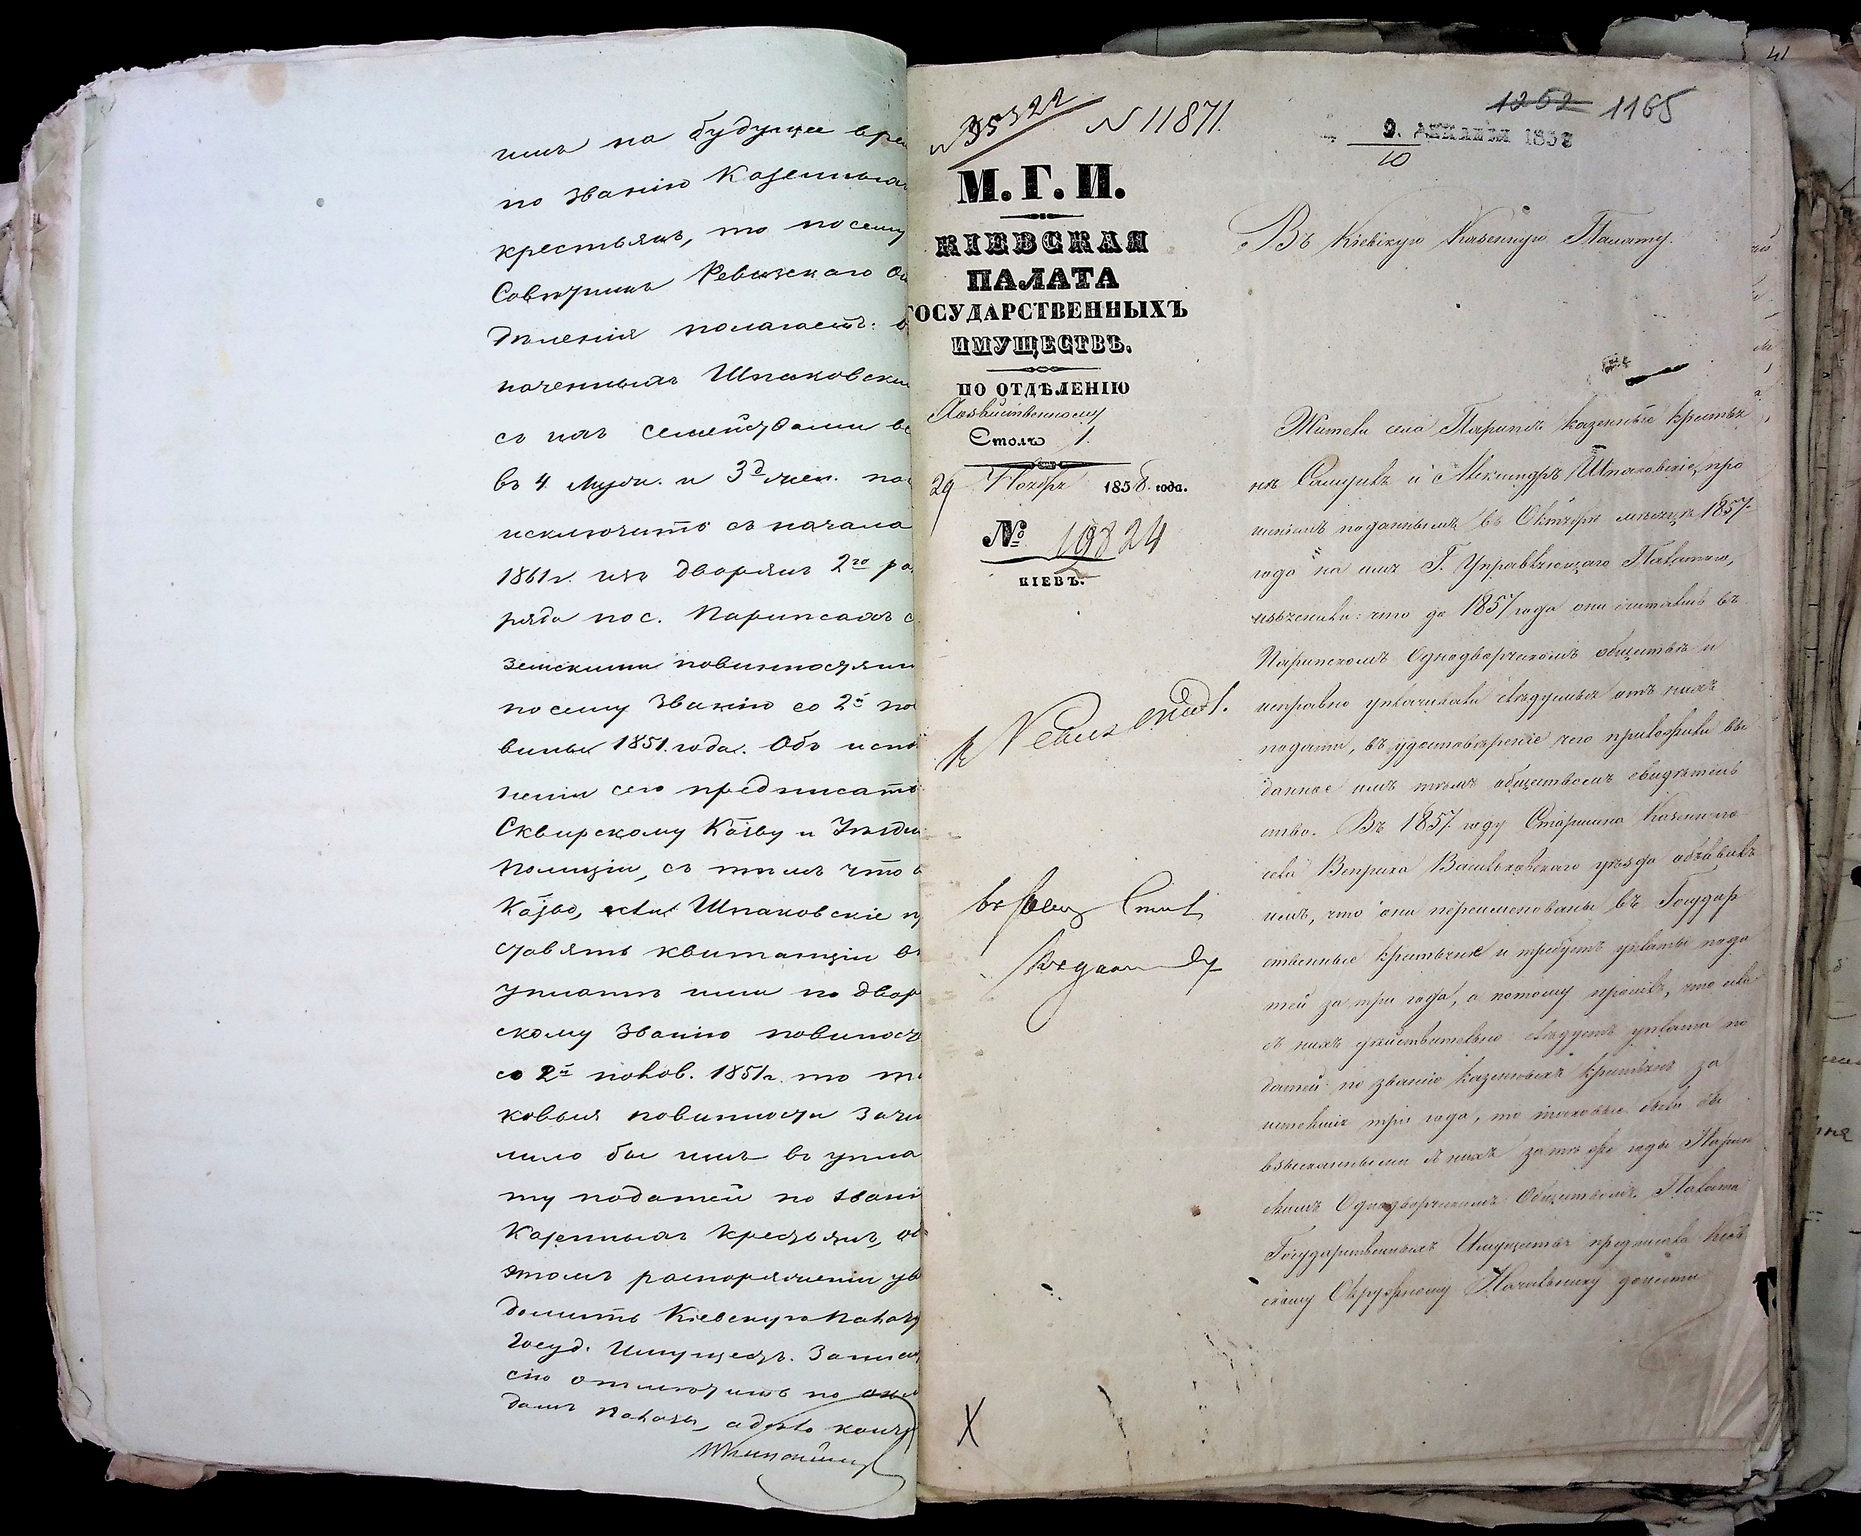 имъ на будущее вре
по званію Казенныхъ
крестьянъ, то посему
Совѣтникъ Ревизскаго От
дѣленія полагаетъ:
наченныхъ Шпаковски
съ ихъ семействами вс
въ 4 муж. и 3 жен. по
исключить съ начала
1861 г. изъ дворянъ 2го ра
ряда по с. Парипсахъ с
земскими повинностями
по сему званію со 2й по
вины 1851 года. Объ испо
неніи сего предписать
Сквирскому Казву и Уѣздн
Полиціи, съ тѣмъ что
Казво, если Шпаковскіе п
ставятъ квитанціи въ
уплатѣ ими по двор
скому званію повиност
со 2й полов. 1851 г. то та
ковыя повинности зачи
лило бы имъ въ упла
ту податей по звані
Казенныхъ крестьянъ, об
этомъ распоряженіи ув
домить Кіевскую Палату
Госуд. Имуществ. Записк
сію отмѣтить по
дамъ Палаты, а дѣло конч
№ 35322 N 11871.
1252 1165
9. ДЕКАБРЯ 1858
10
М. Г. И.
КІЕВСКАЯ
ПАЛАТА
ГОСУДАРСТВЕННЫХЪ
ИМУЩЕСТВЪ.
ПО ОТДѢЛЕНІЮ
Хозяйственному
Столъ 1.
29 Ноября 1858 года.
№ 19824
КІЕВЪ.
Въ Кіевскую Казенную Палату.
Жители села Парипсъ казенные крестья
не и Александръ Шпаковскіе, про
шеніемъ поданнымъ въ Октябрѣ мѣсяцѣ 1857
года на имя Г. Управляющаго Палатою,
изъяснили: что до 1857 года они считались въ
Парипскомъ Однодворческомъ обществѣ и
исправно уплачивали слѣдуемыя отъ нихъ
подати, въ удостовѣреніе чего приложили вы
данное имъ тѣмъ обществомъ свидѣтель
ство. Въ 1857 году Старшина Казеннаго
села Веприка Васильковскаго уѣзда объявилъ
имъ, что они переименованы въ Государ
ственные крестьяне и требуетъ уплаты пода
тей за три года, а потому просятъ, что если
съ нихъ дѣйствительно слѣдуетъ уплата по
датей по званію казенныхъ крестьянъ за
истекшіе три года, то таковые были бы
взысканными съ нихъ за тѣ же годы Парип
скимъ Однодворческимъ Обществомъ. Палата
Государственныхъ Имуществъ предписала Кіев
скому Окружному Начальнику донести